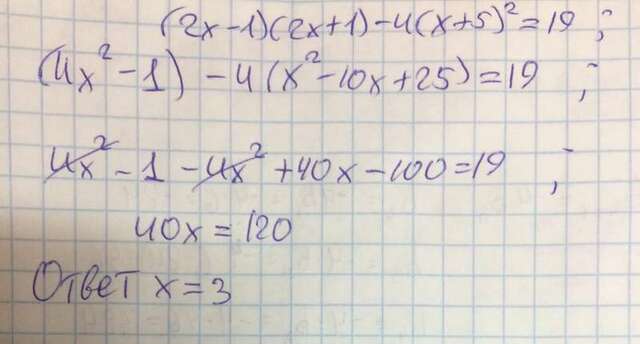 (2x-1)(2x+1)-4(x+5)²=19;
(4x²-1)-4(x²-10x+25)=19;
4x²-1-4x²+40x-100=19;
40x=120
Ответ x=3